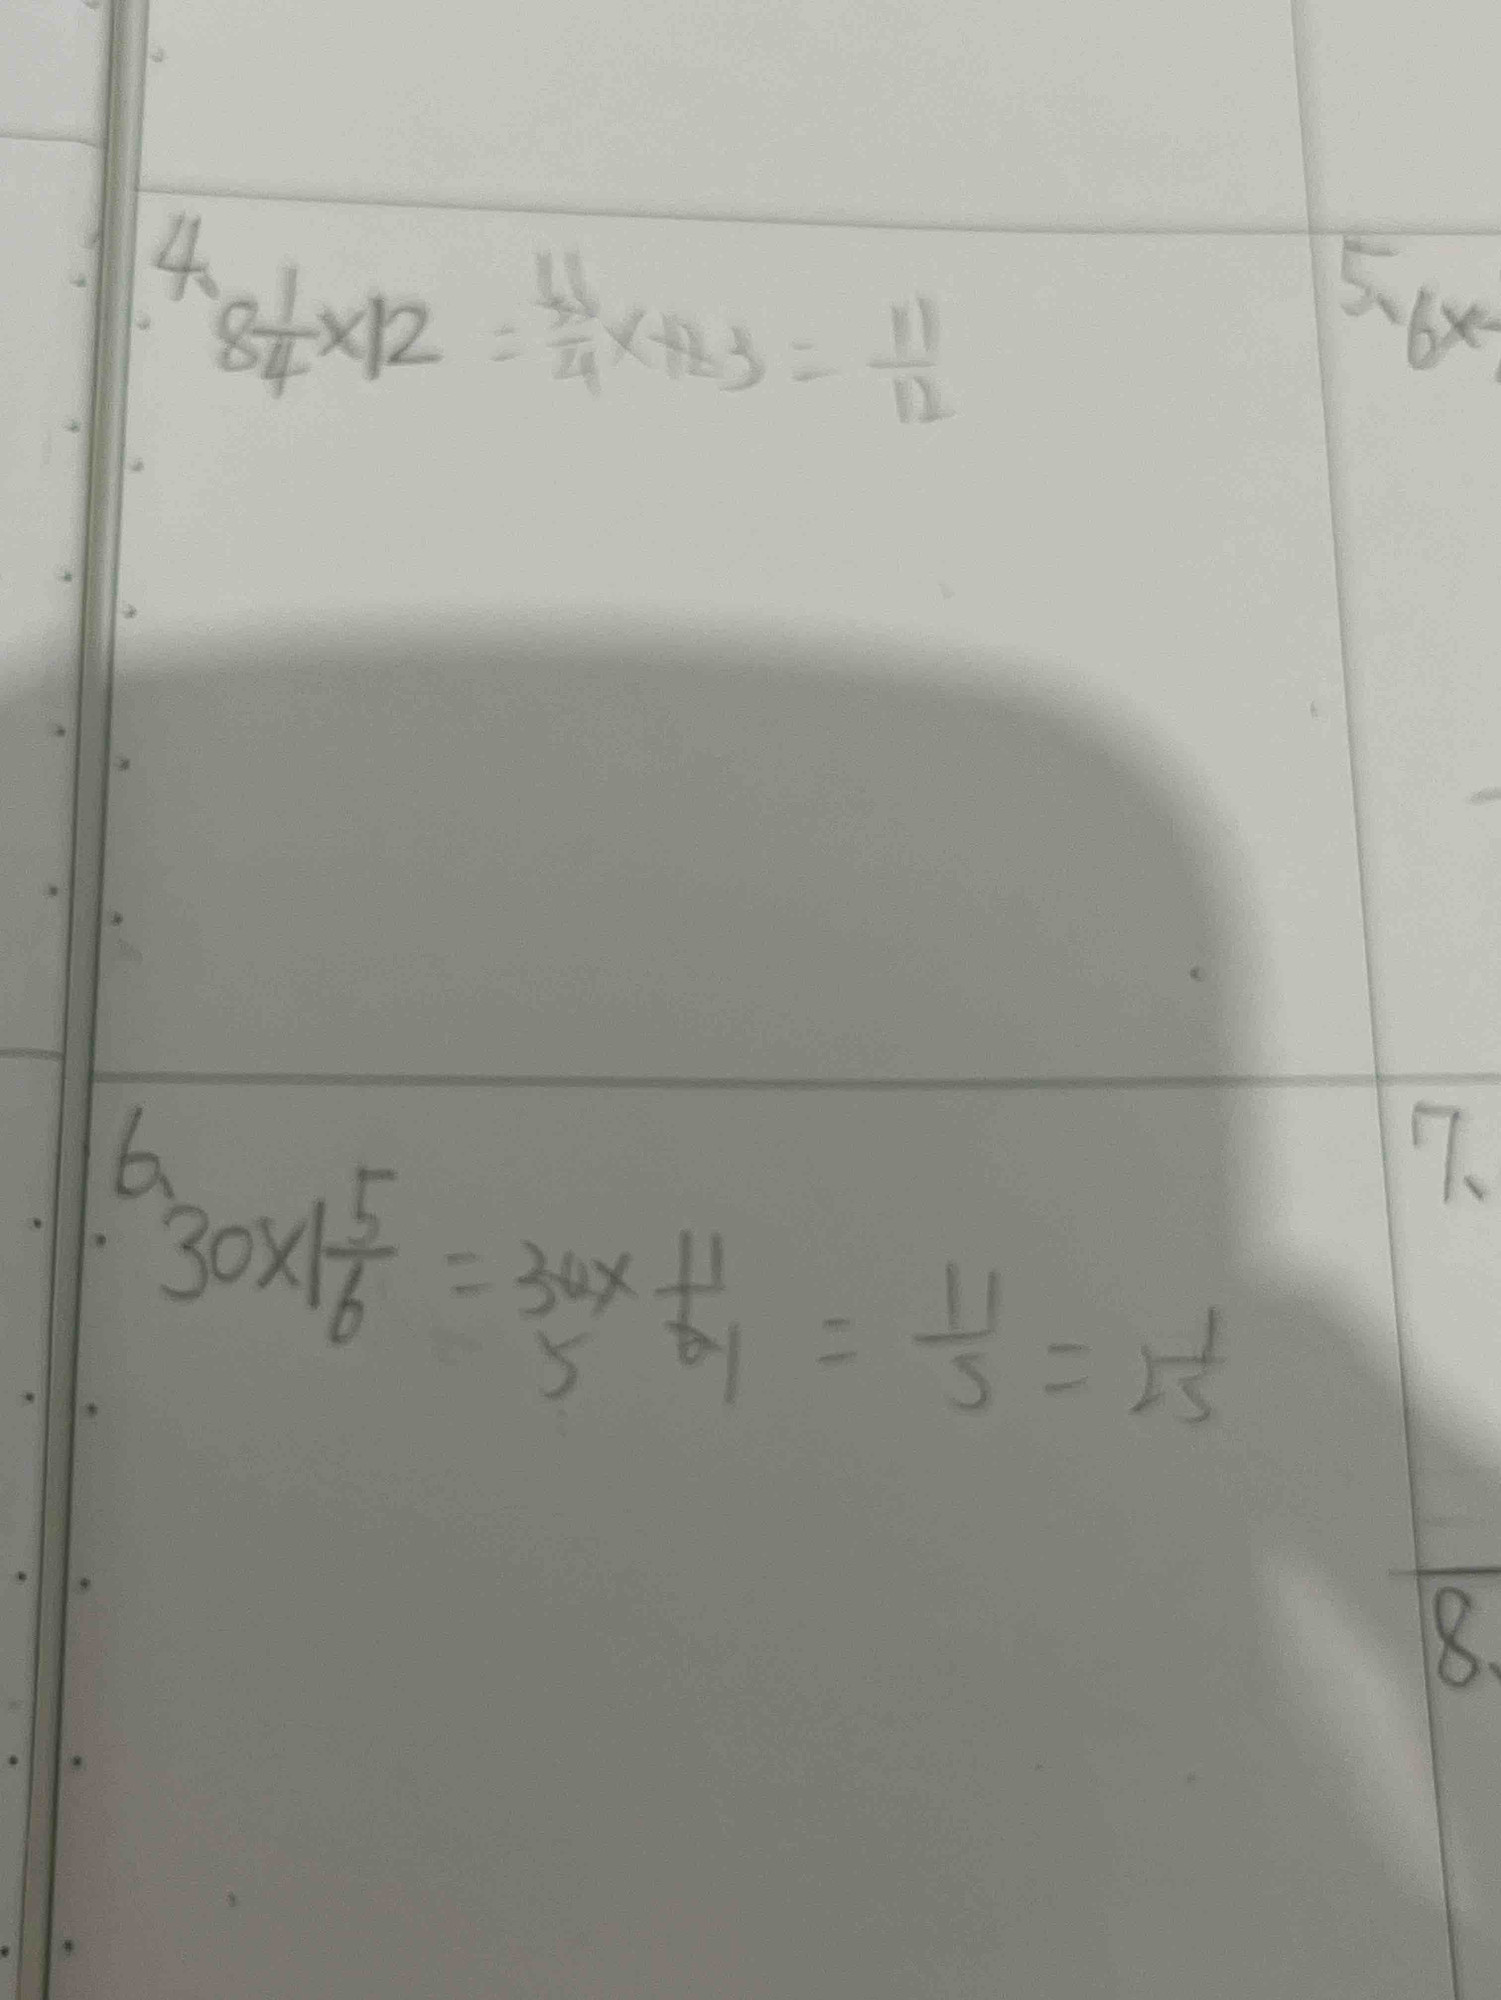 4、 8 1/4 × 12 = 33/4 × 12 3 = 11/12
5、 6×
6、 30×1 5/6 = 30 5 × 11/6 1 = 11/5 = 2 1/5
7、
8、